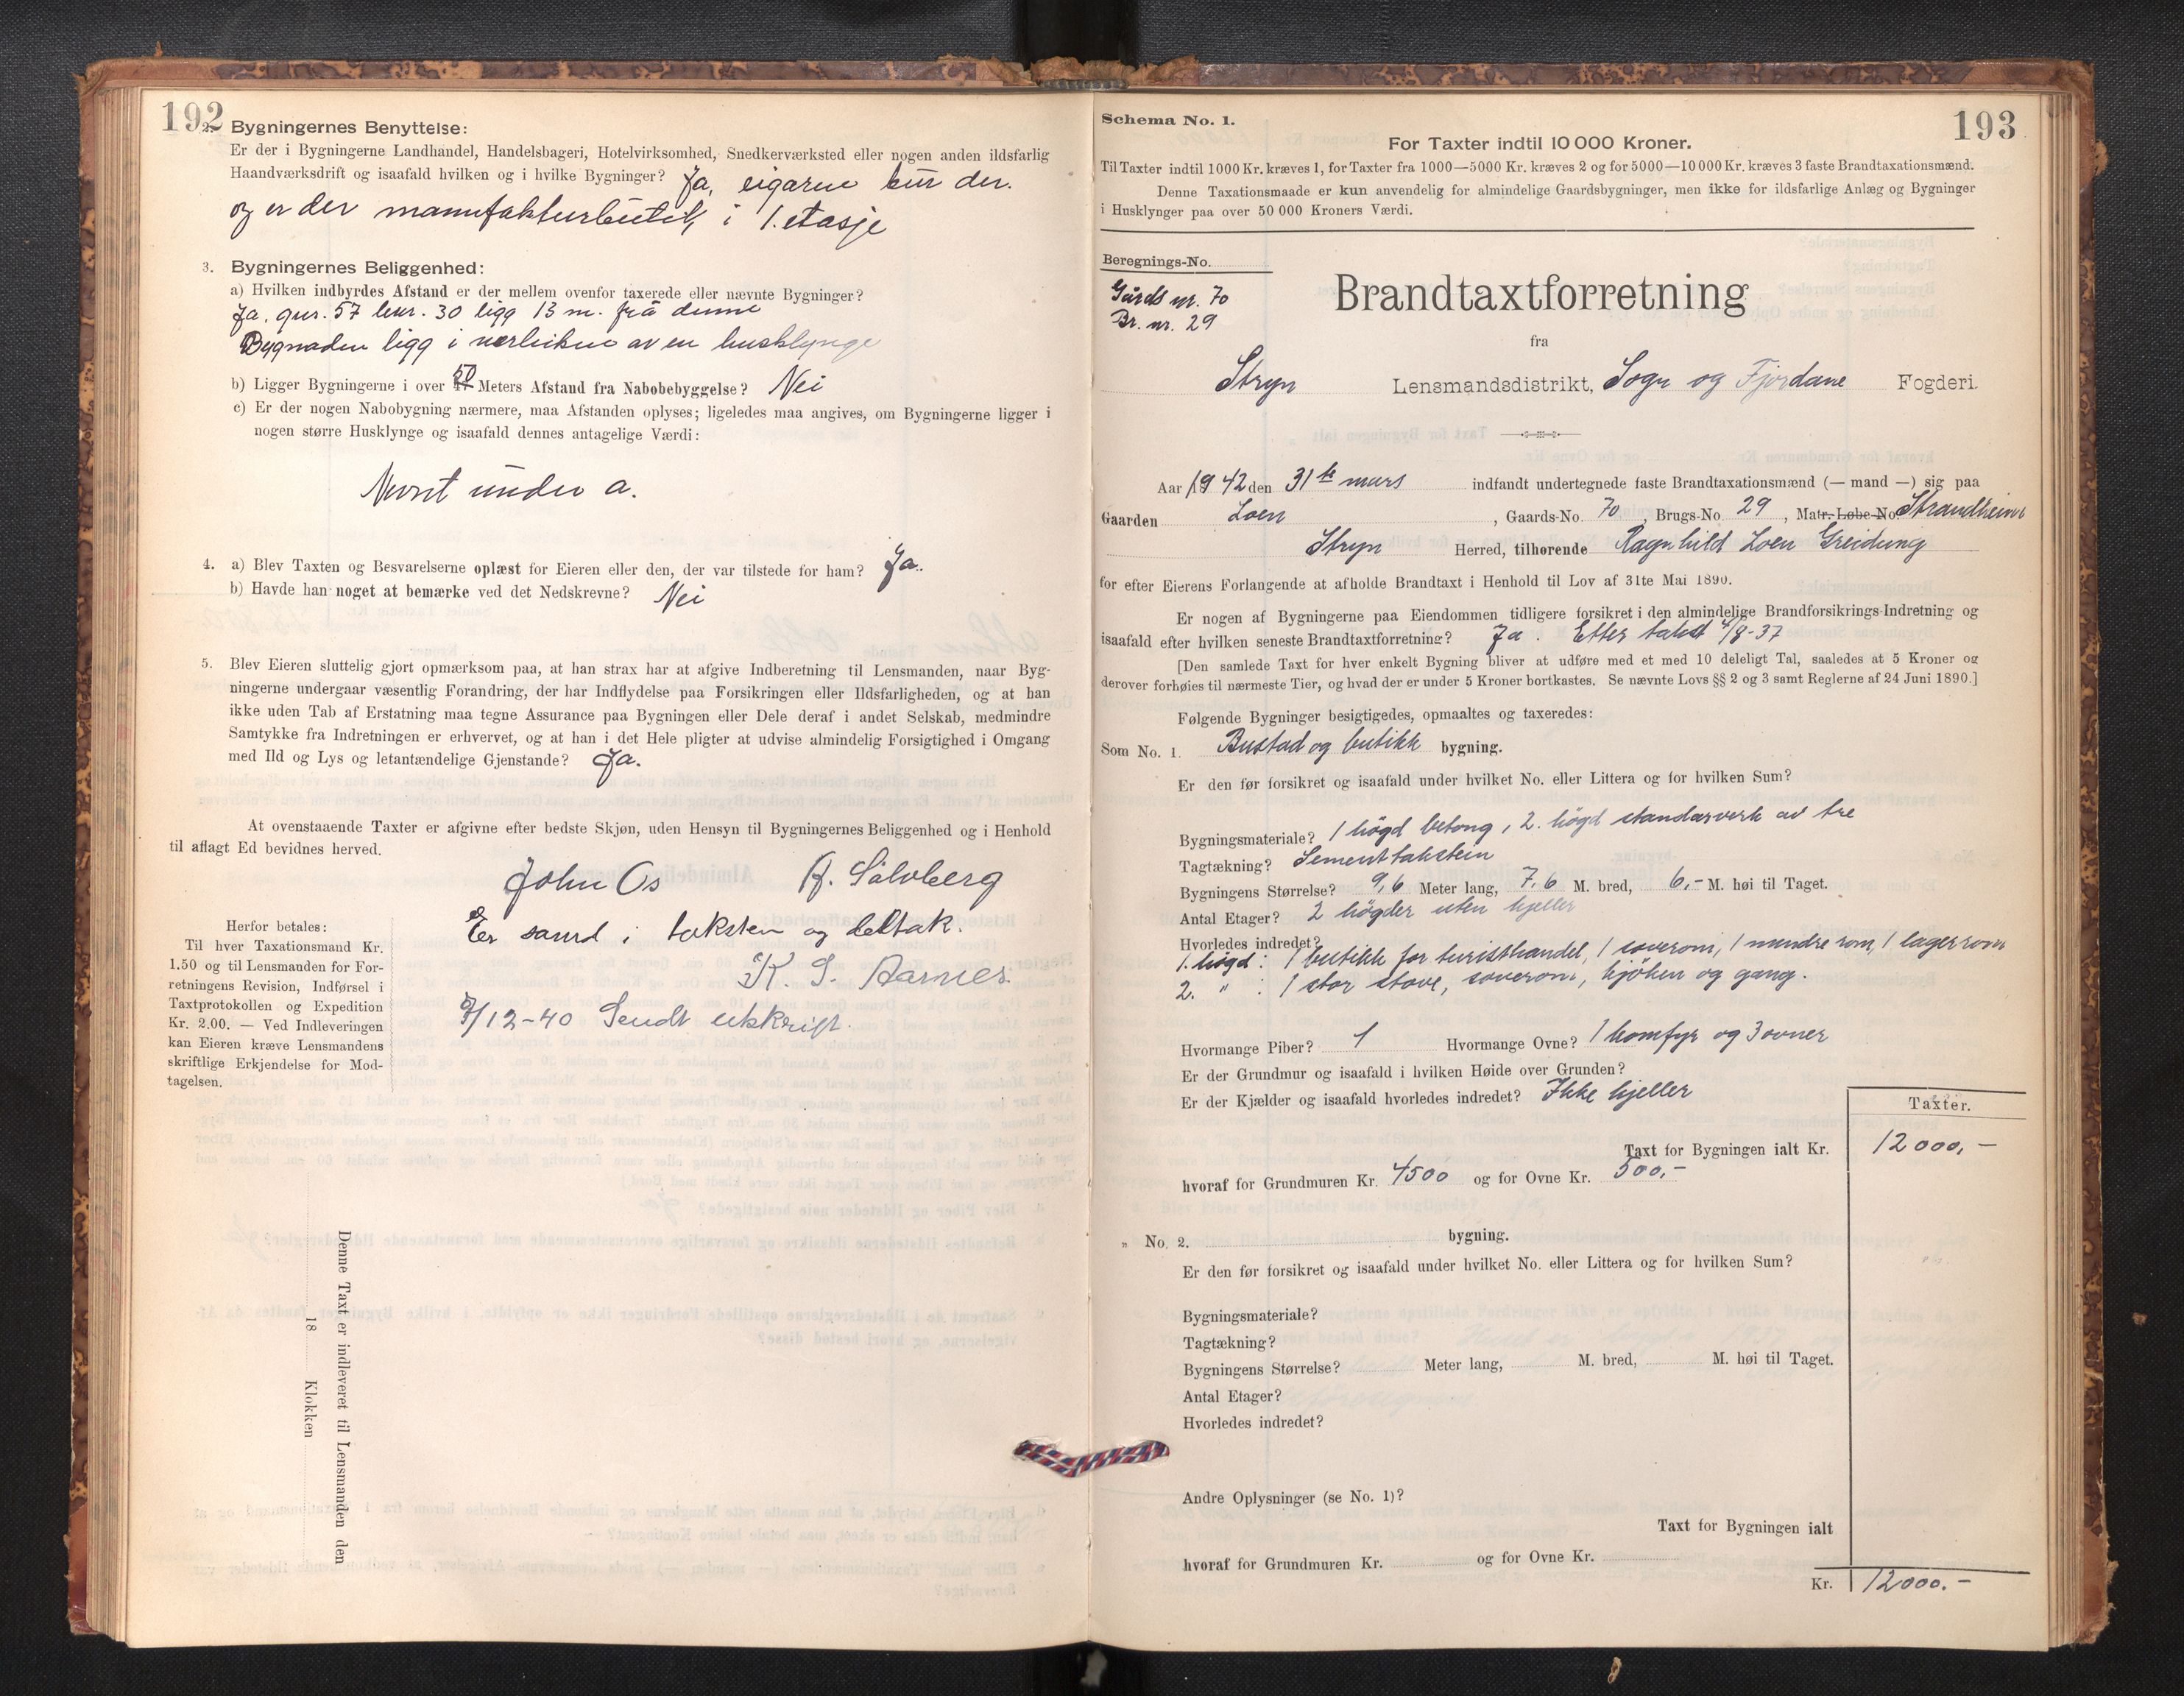 192
2. Bygningernes Benyttelse:
Er der i Bygningerne Landhandel, Handelsbageri, Hotelvirksomhed, Snedkerværksted eller nogen anden ildsfarlig
Haandværksdrift og isaafald hvilken og i hvilke Bygninger? Ja, eigaren bur der.
og er der manufakturbutik i 1. etasje
3. Bygningernes Beliggenhed:
a) Hvilken indbyrdes Afstand er der mellem ovenfor taxerede eller nævnte Bygninger?
Ja, gnr. 57 bnr. 30 ligg 13 m. frå denne
Bygnaden ligg i nærleiken av en husklynge
b) Ligger Bygningerne i over 50 Meters Afstand fra Nabobebyggelse? Nei
c) Er der nogen Nabobygning nærmere, maa Afstanden oplyses; ligeledes maa angives, om Bygningerne ligger i
nogen større Husklynge og isaafald dennes antagelige Værdi:
Nevnt under a.
4. a) Blev Taxten og Besvarelserne oplæst for Eieren eller den, der var tilstede for ham? Ja.
b) Havde han noget at bemærke ved det Nedskrevne? Nei
5. Blev Eieren sluttelig gjort opmærksom paa, at han strax har at afgive Indberetning til Lensmanden, naar Byg-
ningerne undergaar væsentlig Forandring, der har Indflydelse paa Forsikringen eller Ildsfarligheden, og at han
ikke uden Tab af Erstatning maa tegne Assurance paa Bygningen eller Dele deraf i andet Selskab, medmindre
Samtykke fra Indretningen er erhvervet, og at han i det Hele pligter at udvise almindelig Forsigtighed i Omgang
med Ild og Lys og letantændelige Gjenstande? Ja.
At ovenstaaende Taxter er afgivne efter bedste Skjøn, uden Hensyn til Bygningernes Beliggenhed og i Henhold
til aflagt Ed bevidnes herved.
John Os
Sålvberg
Er samd i taksten og deltak.
K. S. Aarnes.
/12-40 Sendt utskrift.
Herfor betales:
Til hver Taxationsmand Kr.
1.50 og til Lensmanden for For-
retningens Revision, Indførsel i
Taxtprotokollen og Expedition
Kr. 2.00. — Ved Indleveringen
kan Eieren kræve Lensmandens
skriftlige Erkjendelse for Mod-
tagelsen.
Denne Taxt er indleveret til Lensmanden den
18 Klokken
193
Schema No. 1.
For Taxter indtil 10 000 Kroner.
Til Taxter indtil 1000 Kr. kræves 1, for Taxter fra 1000—5000 Kr. kræves 2 og for 5000—10000 Kr. kræves 3 faste Brandtaxationsmænd.
Denne Taxationsmaade er kun anvendelig for almindelige Gaardsbygninger, men ikke for ildsfarlige Anlæg og Bygninger
i Husklynger paa over 50 000 Kroners Værdi.
Beregnings-No.
Gårds nr. 70
Br. nr. 29
Brandtaxtforretning
fra
Stryn Lensmandsdistrikt, Sogn og Fjordane Fogderi.
Aar 1942 den 31te mars indfandt undertegnede faste Brandtaxationsmænd (— mand —) sig paa
Gaarden Loen, Gaards-No. 70, Brugs-No. 29, Matr. Løbe-No. Strandheim
Stryn Herred, tilhørende Ragnhild Loen Greidung
for efter Eierens Forlangende at afholde Brandtaxt i Henhold til Lov af 31te Mai 1890.
Er nogen af Bygningerne paa Eiendommen tidligere forsikret i den almindelige Brandforsikrings-Indretning og
isaafald efter hvilken seneste Brandtaxtforretning? Ja. Etter takst 4/8-37
[Den samlede Taxt for hver enkelt Bygning bliver at udføre med et med 10 deleligt Tal, saaledes at 5 Kroner og
derover forhøies til nærmeste Tier, og hvad der er under 5 Kroner bortkastes. Se nævnte Lovs §§ 2 og 3 samt Reglerne af 24 Juni 1890.]
Følgende Bygninger besigtigedes, opmaaltes og taxeredes:
Som No. 1. Bustad og butikk bygning.
Er den før forsikret og isaafald under hvilket No. eller Littera og for hvilken Sum?
Bygningsmateriale? 1 högd betong, 2. högd standarverk av tre
Tagtækning? Sementtakstein
Bygningens Størrelse? 9,6 Meter lang, 7,6 M. bred, 6,- M. høi til Taget.
Antal Etager? 2 högder uten kjeller
Hvorledes indredet?
1. högd: 1 butikk for turisthandel, 1 soverom, 1 mindre rom, 1 lagerrom
2. " : 1 stor stove, soverom, kjöken og gang.
Hvormange Piber? 1 Hvormange Ovne? 1 komfyr og 3 ovner
Er der Grundmur og isaafald i hvilken Høide over Grunden?
Er der Kjælder og isaafald hvorledes indredet? Ikke kjeller
Taxter.
Taxt for Bygningen ialt Kr. 12000,-
hvoraf for Grundmuren Kr. 4500 og for Ovne Kr. 500,-
„ No. 2. bygning.
Er den før forsikret og isaafald under hvilket No. eller Littera og for hvilken Sum?
Bygningsmateriale?
Tagtækning?
Bygningens Størrelse? Meter lang, M. bred, M. høi til Taget.
Antal Etager?
Hvorledes indredet?
Andre Oplysninger (se No. 1)?
Taxt for Bygningen ialt
hvoraf for Grundmuren Kr. og for Ovne Kr.
Kr. 12000.-